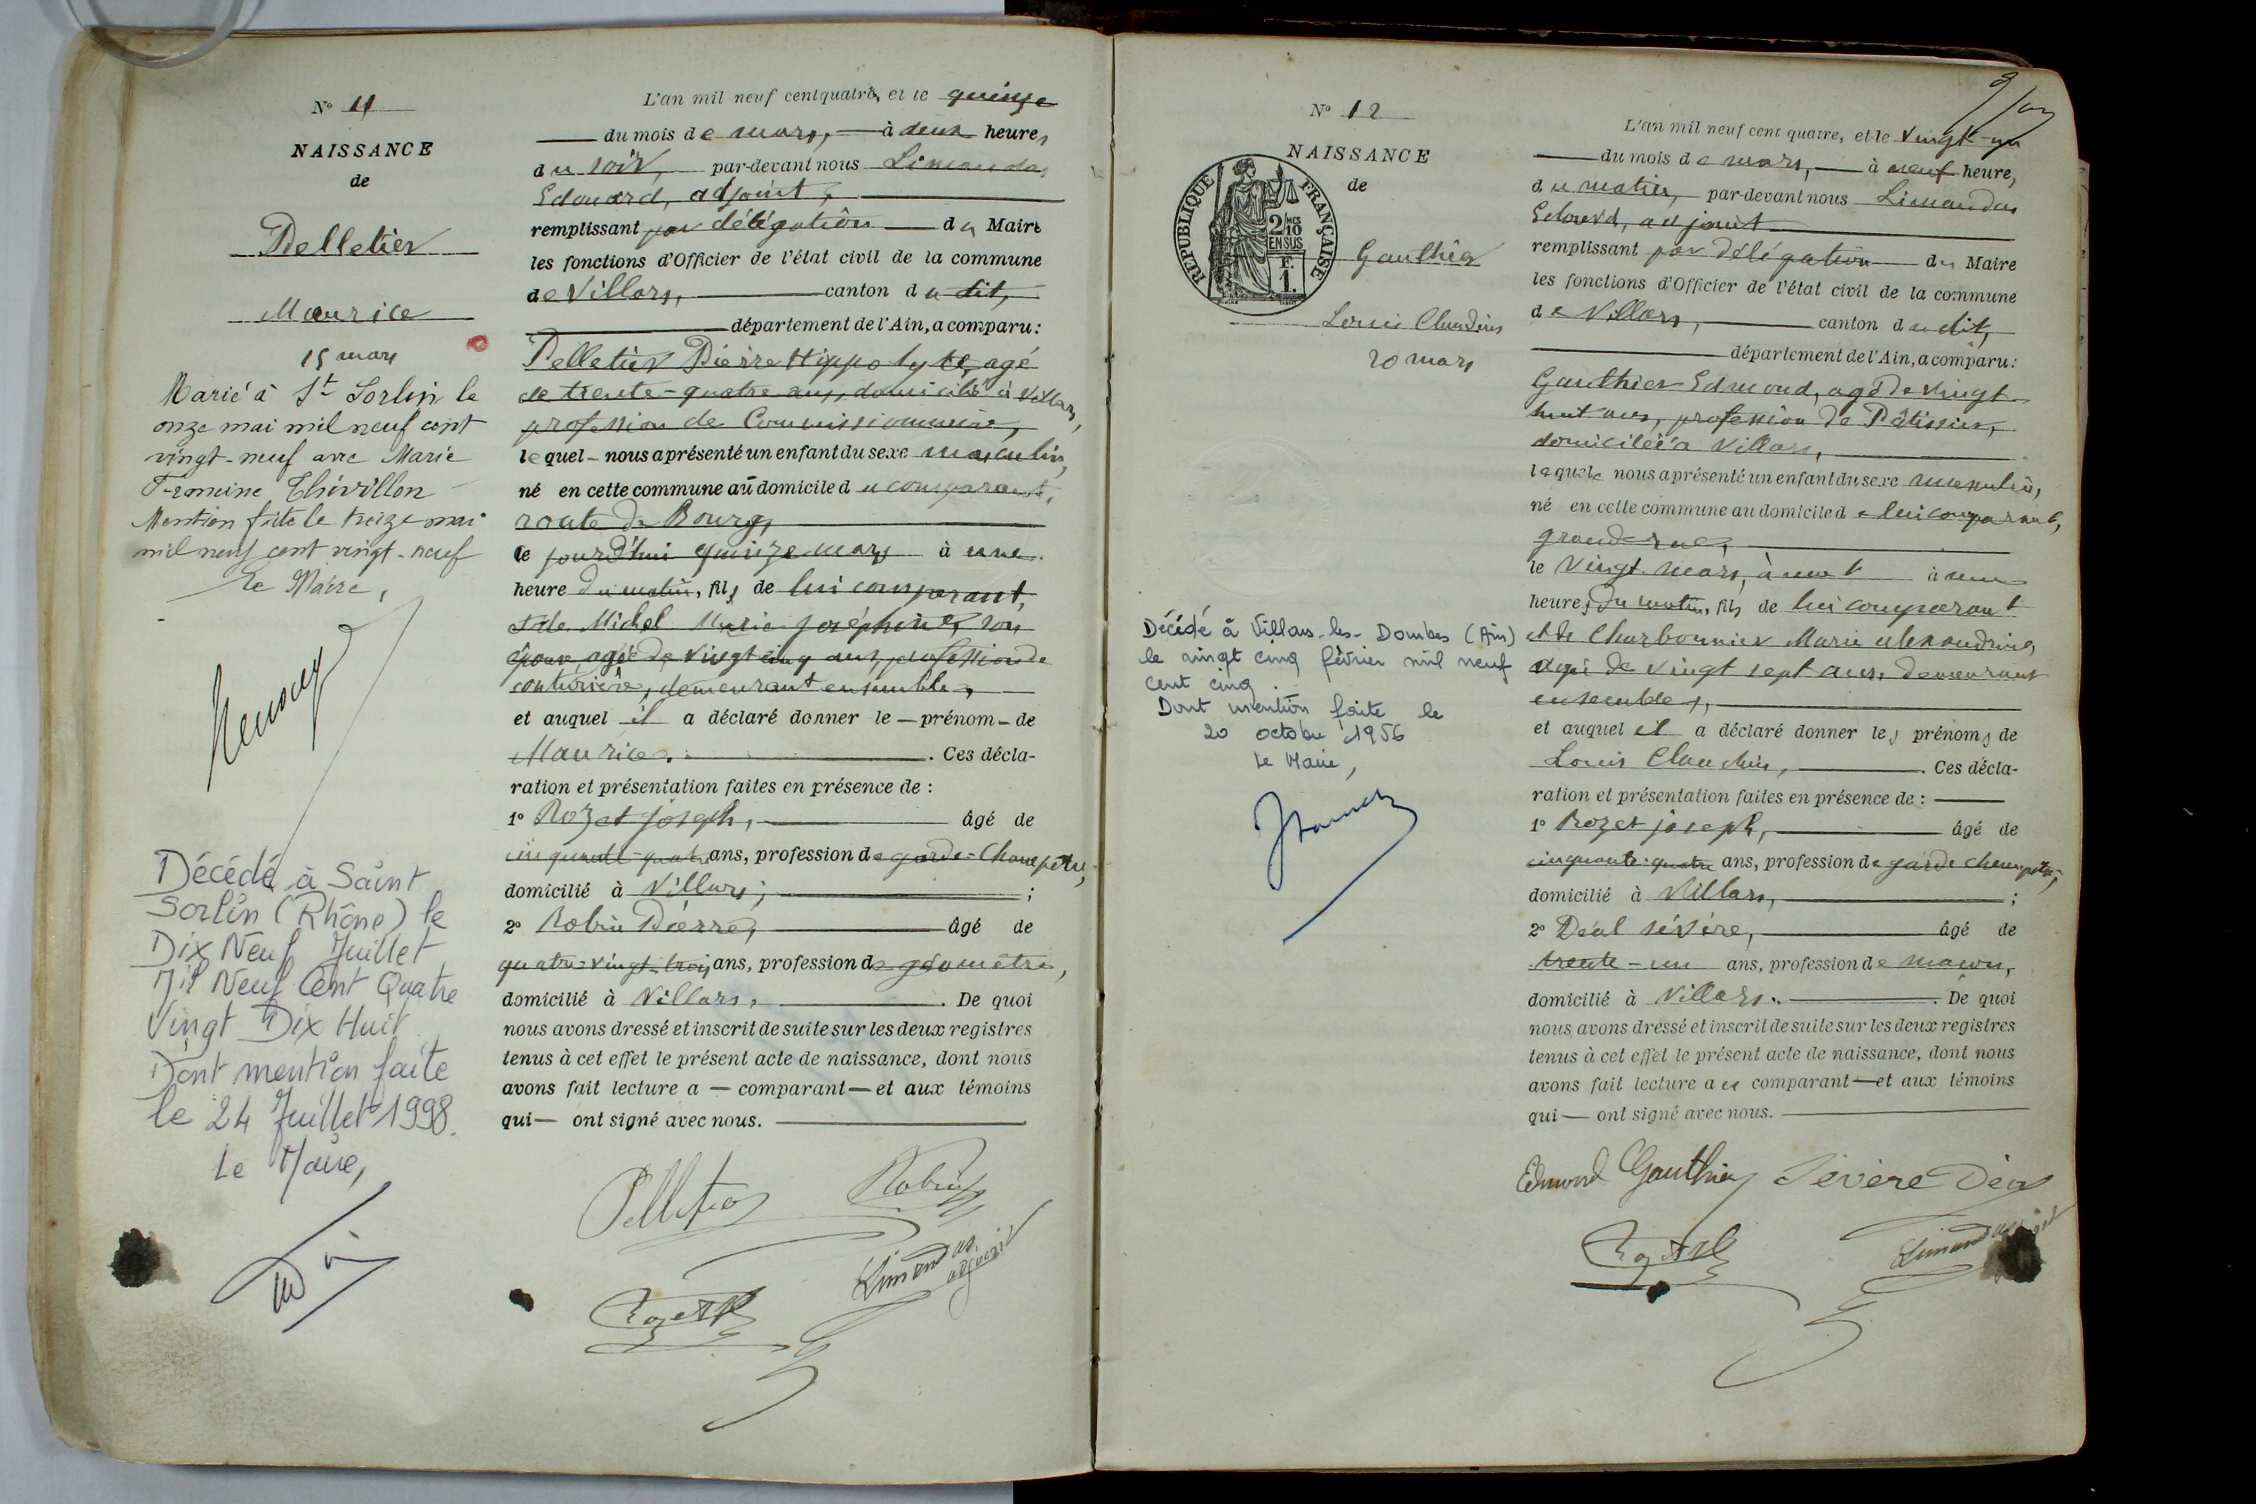 N° 11
NAISSANCE
de
Pelletier
Maurice
15 mars
Marié à St Sorlin le
onze mai mil neuf cent
vingt-neuf avec Marie
Francine Thévillon
Mention faite le treize mai
mil neuf cent vingt-neuf
Le Maire,
Décédé à Saint
Sorlin (Rhône) le
Dix Neuf Juillet
Mil Neuf Cent Quatre
Vingt Dix Huit
Dont mention faite
le 24 Juillet 1998.
Le Maire,
L'an mil neuf cent quatre, et le quinze
du mois de mars, à deux heures
du soir, par-devant nous Limandas
Edouard, adjoint,
remplissant par délégation du Maire
les fonctions d'Officier de l'état civil de la commune
de Villars, canton du dit,
département de l'Ain, a comparu:
Pelletier Pierre Hippolyte, agé
de trente-quatre ans, domicilié à Villars,
profession de Commissionnaire,
lequel nous a présenté un enfant du sexe masculin,
né en cette commune au domicile du comparant,
route de Bourg,
le jourd'hui quinze mars à une
heure du matin, fils de lui comparant,
et de Michel Marie Joséphine, son
épouse, agée de vingt cinq ans, profession de
couturière, demeurant ensemble,
et auquel il a déclaré donner le prénom de
Maurice. Ces décla-
ration et présentation faites en présence de :
1° Rozet Joseph, âgé de
cinquante-quatre ans, profession de garde-Champêtre,
domicilié à Villars, ;
2° Robin Pierre, âgé de
quatre-vingt-trois ans, profession de géomètre,
domicilié à Villars. De quoi
nous avons dressé et inscrit de suite sur les deux registres
tenus à cet effet le présent acte de naissance, dont nous
avons fait lecture a comparant et aux témoins
qui ont signé avec nous.
Pelletier Robin
Rozet Limandas adjoint
N° 12
NAISSANCE
de
RÉPUBLIQUE FRANÇAISE
2/10 EN SUS
F. 1.
Gauthier
Louis Claudius
20 mars
Décédé à Villars-les-Dombes (Ain)
le vingt cinq février mil neuf
cent cinq.
Dont mention faite le
20 octobre 1956
Le Maire,
L'an mil neuf cent quatre, et le vingt-un
du mois de mars, à neuf heures,
du matin, par-devant nous Limandas
Edouard, adjoint
remplissant par délégation du Maire
les fonctions d'Officier de l'état civil de la commune
de Villars, canton du dit,
département de l'Ain, a comparu:
Gauthier Edmond, agé de vingt
huit ans, profession de Pâtissier,
domicilié à Villars,
lequel nous a présenté un enfant du sexe masculin,
né en cette commune au domicile de lui comparant,
grande rue,
le vingt mars, à
heures du matin, fils de lui comparant
et de Charbonnier Marie Alexandrine,
agée de vingt sept ans, demeurant
ensemble,
et auquel il a déclaré donner les prénoms de
Louis Claudius, . Ces décla-
ration et présentation faites en présence de :
1° Rozet Joseph, âgé de
cinquante-quatre ans, profession de garde champêtre,
domicilié à Villars, ;
2° Déal Sévère, âgé de
trente-un ans, profession de maçon,
domicilié à Villars. De quoi
nous avons dressé et inscrit de suite sur les deux registres
tenus à cet effet le présent acte de naissance, dont nous
avons fait lecture au comparant et aux témoins
qui ont signé avec nous.
Edmond Gauthier Sévère Déal
Rozet Limandas